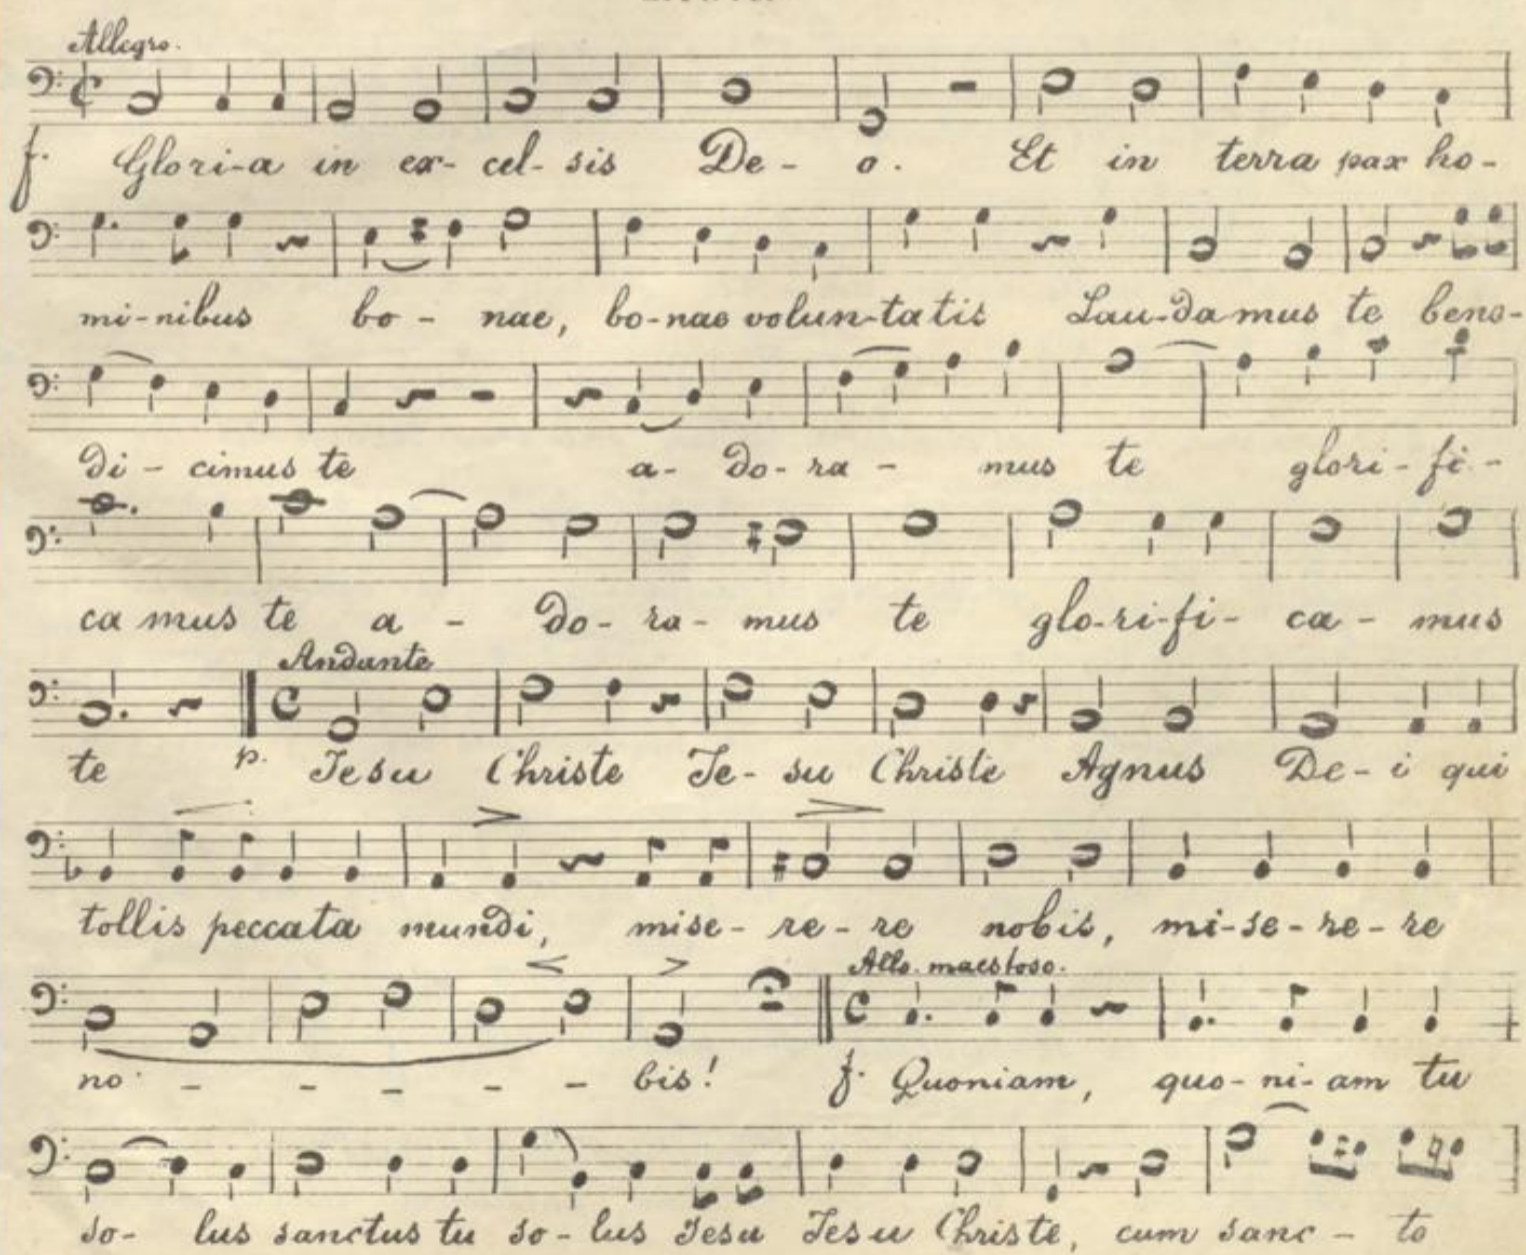 Allegro.
f. Glori-a in ex- cel- sis De- o. Et in terra pax ho-
mi-nibus bo- nae, bo-nae volun-tatis Lau-damus te bene-
di- cimus te a- do-ra- mus te glori-fi-
ca mus te a- do- ra- mus te glo-ri-fi- ca- mus
Andante
te p. Jesu Christe Je- su Christe Agnus De- i qui
tollis peccata mundi, mise- re- re nobis, mi-se-re-re
Allo. maestoso.
no- - - - - bis! f. Quoniam, quo-ni-am tu
so- lus sanctus tu so- lus Jesu Jesu Christe, cum sanc- to